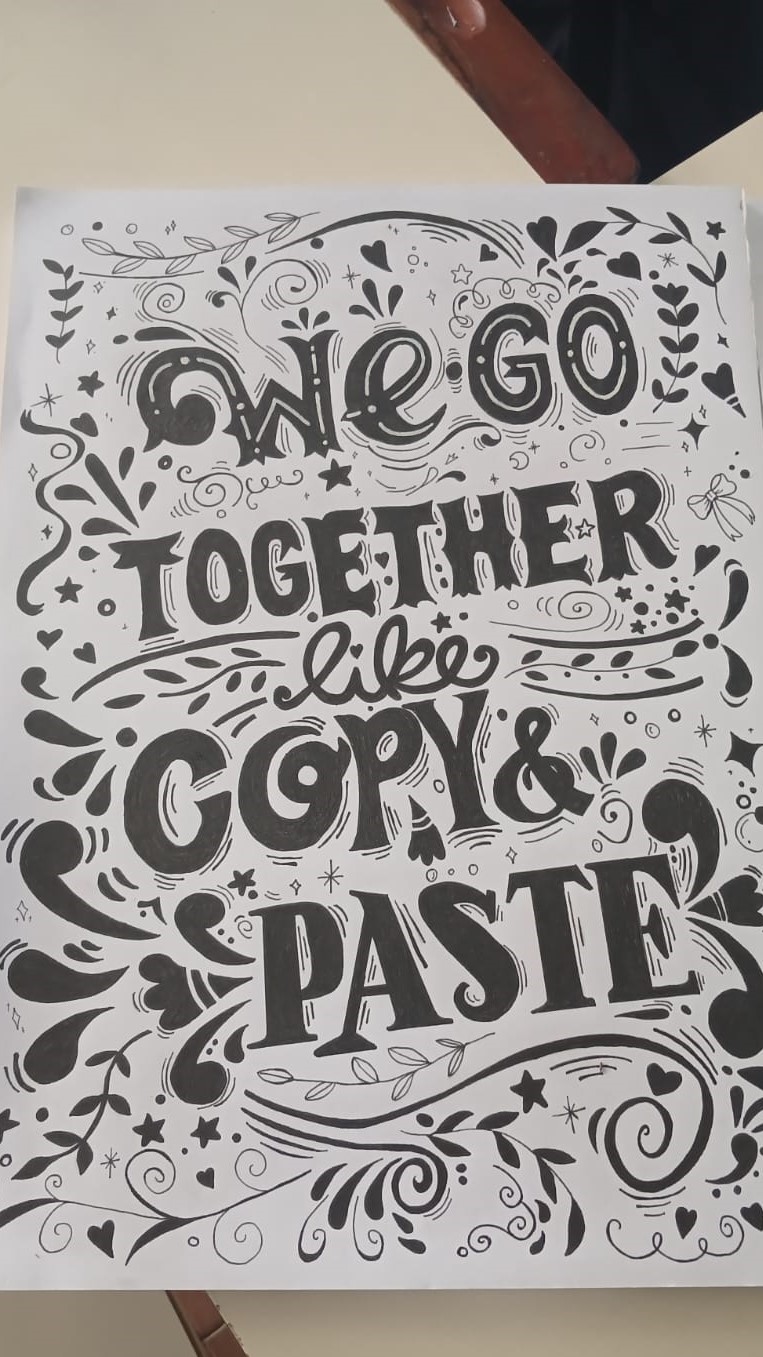 We GO
TOGETHER
like
COPY &
PASTE